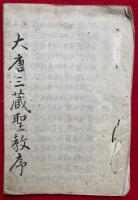 大唐三蔵聖教序